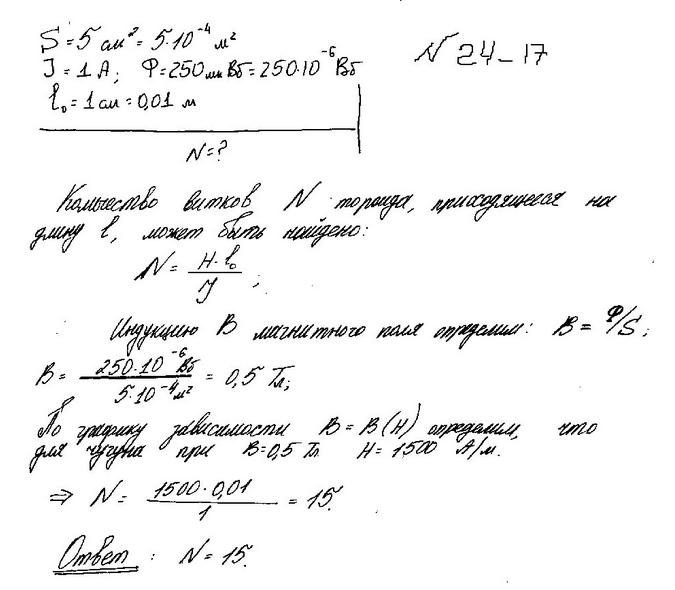 S = 5 см² = 5·10⁻⁴ м²
№ 24-17
J = 1 А; Ф = 250 мк Вб = 250·10⁻⁶ Вб
l₀ = 1 см = 0,01 м
N = ?
Количество витков N тороида, приходящееся на
длину l, может быть найдено:
N = H·l₀ / J ;
Индукцию B магнитного поля определим: B = Ф/S;
B = 250·10⁻⁶ Вб / 5·10⁻⁴ м² = 0,5 Тл;
По графику зависимости B = B(H) определим, что
для чугуна при B = 0,5 Тл H = 1500 А/м.
⇒ N = 1500·0,01 / 1 = 15.
Ответ : N = 15.